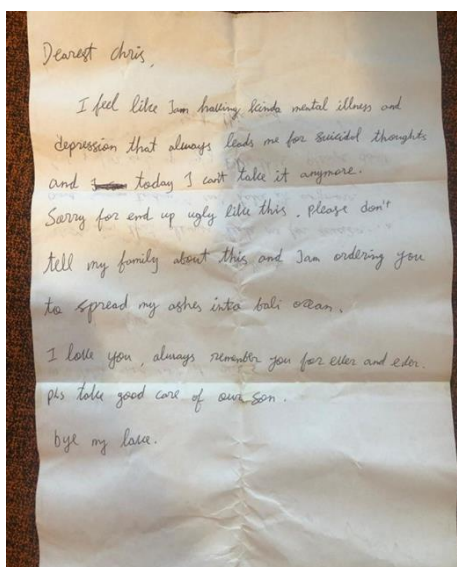 Dearest Chris,
I feel like Iam having kinda mental illness and
depression that always leads me for suicidal thoughts
and today I can't take it anymore.
Sorry for end up ugly like this. Please don't
tell my family about this and Iam ordering you
to spread my ashes into bali ocean.
I love you, always remember you for ever and ever.
pls take good care of our son.
bye my love.